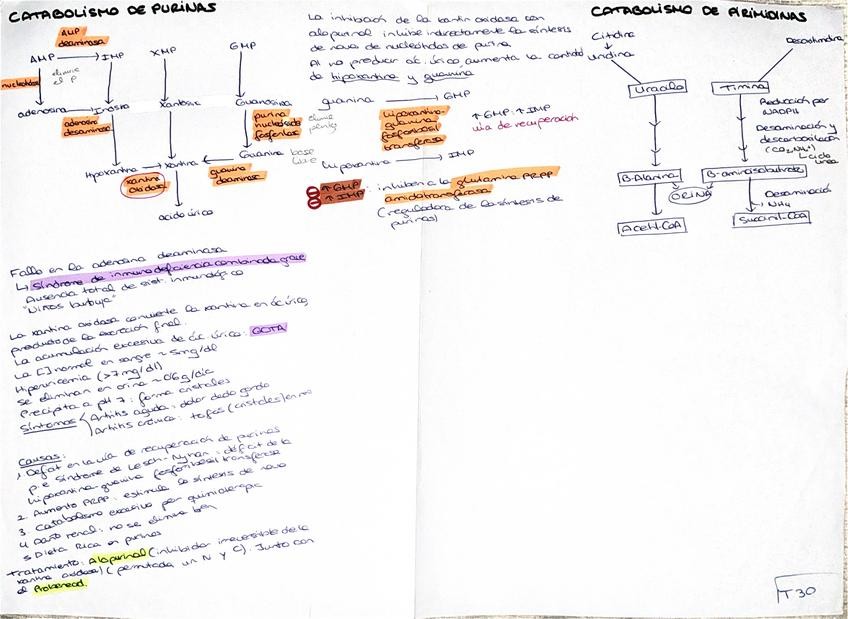 CATABOLISMO DE PURINAS
AMP
deaminasa
AMP
IMP
XMP
GMP
elimina
el P
adenosina
Inosina
Xantosina
Guanosina
adenosina
deaminasa
purina
nucleosido
fosforilasa
Hipoxantina
Xantina
Guanina
base
libre
xantina
oxidasa
guanina
deaminasa
acido úrico
Fallo en la adenosina deaminasa
↳ Síndrome de inmunodeficiencia combinada grave
Ausencia total de sist. inmunológico
"Niños burbuja"
La xantina oxidasa convierte la xantina en ác. úrico,
producto de la excreción final.
La acumulación excesiva de ác. úrico: GOTA
La [ ] normal en sangre ~ 5mg/dl
Hiperuricemia (>7mg/dl)
Se eliminan en orina ~ 0'6g/dia
Precipita a pH 7: forma cristales
Síntomas
Artritis aguda: dolor dedo gordo
Artritis crónica: tofos (cristales) en
Causas:
1. Déficit en la vía de recuperación de purinas
p.e Síndrome de Lesch-Nyhan: déficit de la
hipoxantina guanina fosforribosil transferasa
2. Aumento PRPP: estimula la síntesis de novo
3. Catabolismo excesivo por quimioterapia
4. Daño renal: no se elimina bien
5. Dieta Rica en purinas
Tratamiento: Alopurinol (inhibidor irreversible de la
xantina oxidasa) (permutada un N y C). Junto con
el Probenecid.
La inhibición de la xantin oxidasa con
alopurinol inhibe indirectamente la síntesis
de novo de nucleótidos de purina
Al no producir ác. úrico, aumenta la cantidad
de hipoxantina y guanina
guanina → GMP
hipoxantina-
guanina
fosforribosil
transferasa
↑ GMP: ↑ IMP
vía de recuperación
hipoxantina → IMP
↑ GMP
↑ IMP
: inhiben a la glutamina PRPP
amidotransferasa
(reguladora de la síntesis de
purinas)
CATABOLISMO DE PIRIMIDINAS
Citidina
uridina
Desoxitimidina
Uracilo
Timina
Reducción por
NADPH
Desaminación y
descarboxilación
(CO₂ NH₄⁺)
↳ ciclo
urea
B-Alanina
B-aminoisobutirato
ORINA
Desaminación
↳ NH₄
Acetil-CoA
Succinil-CoA
T30